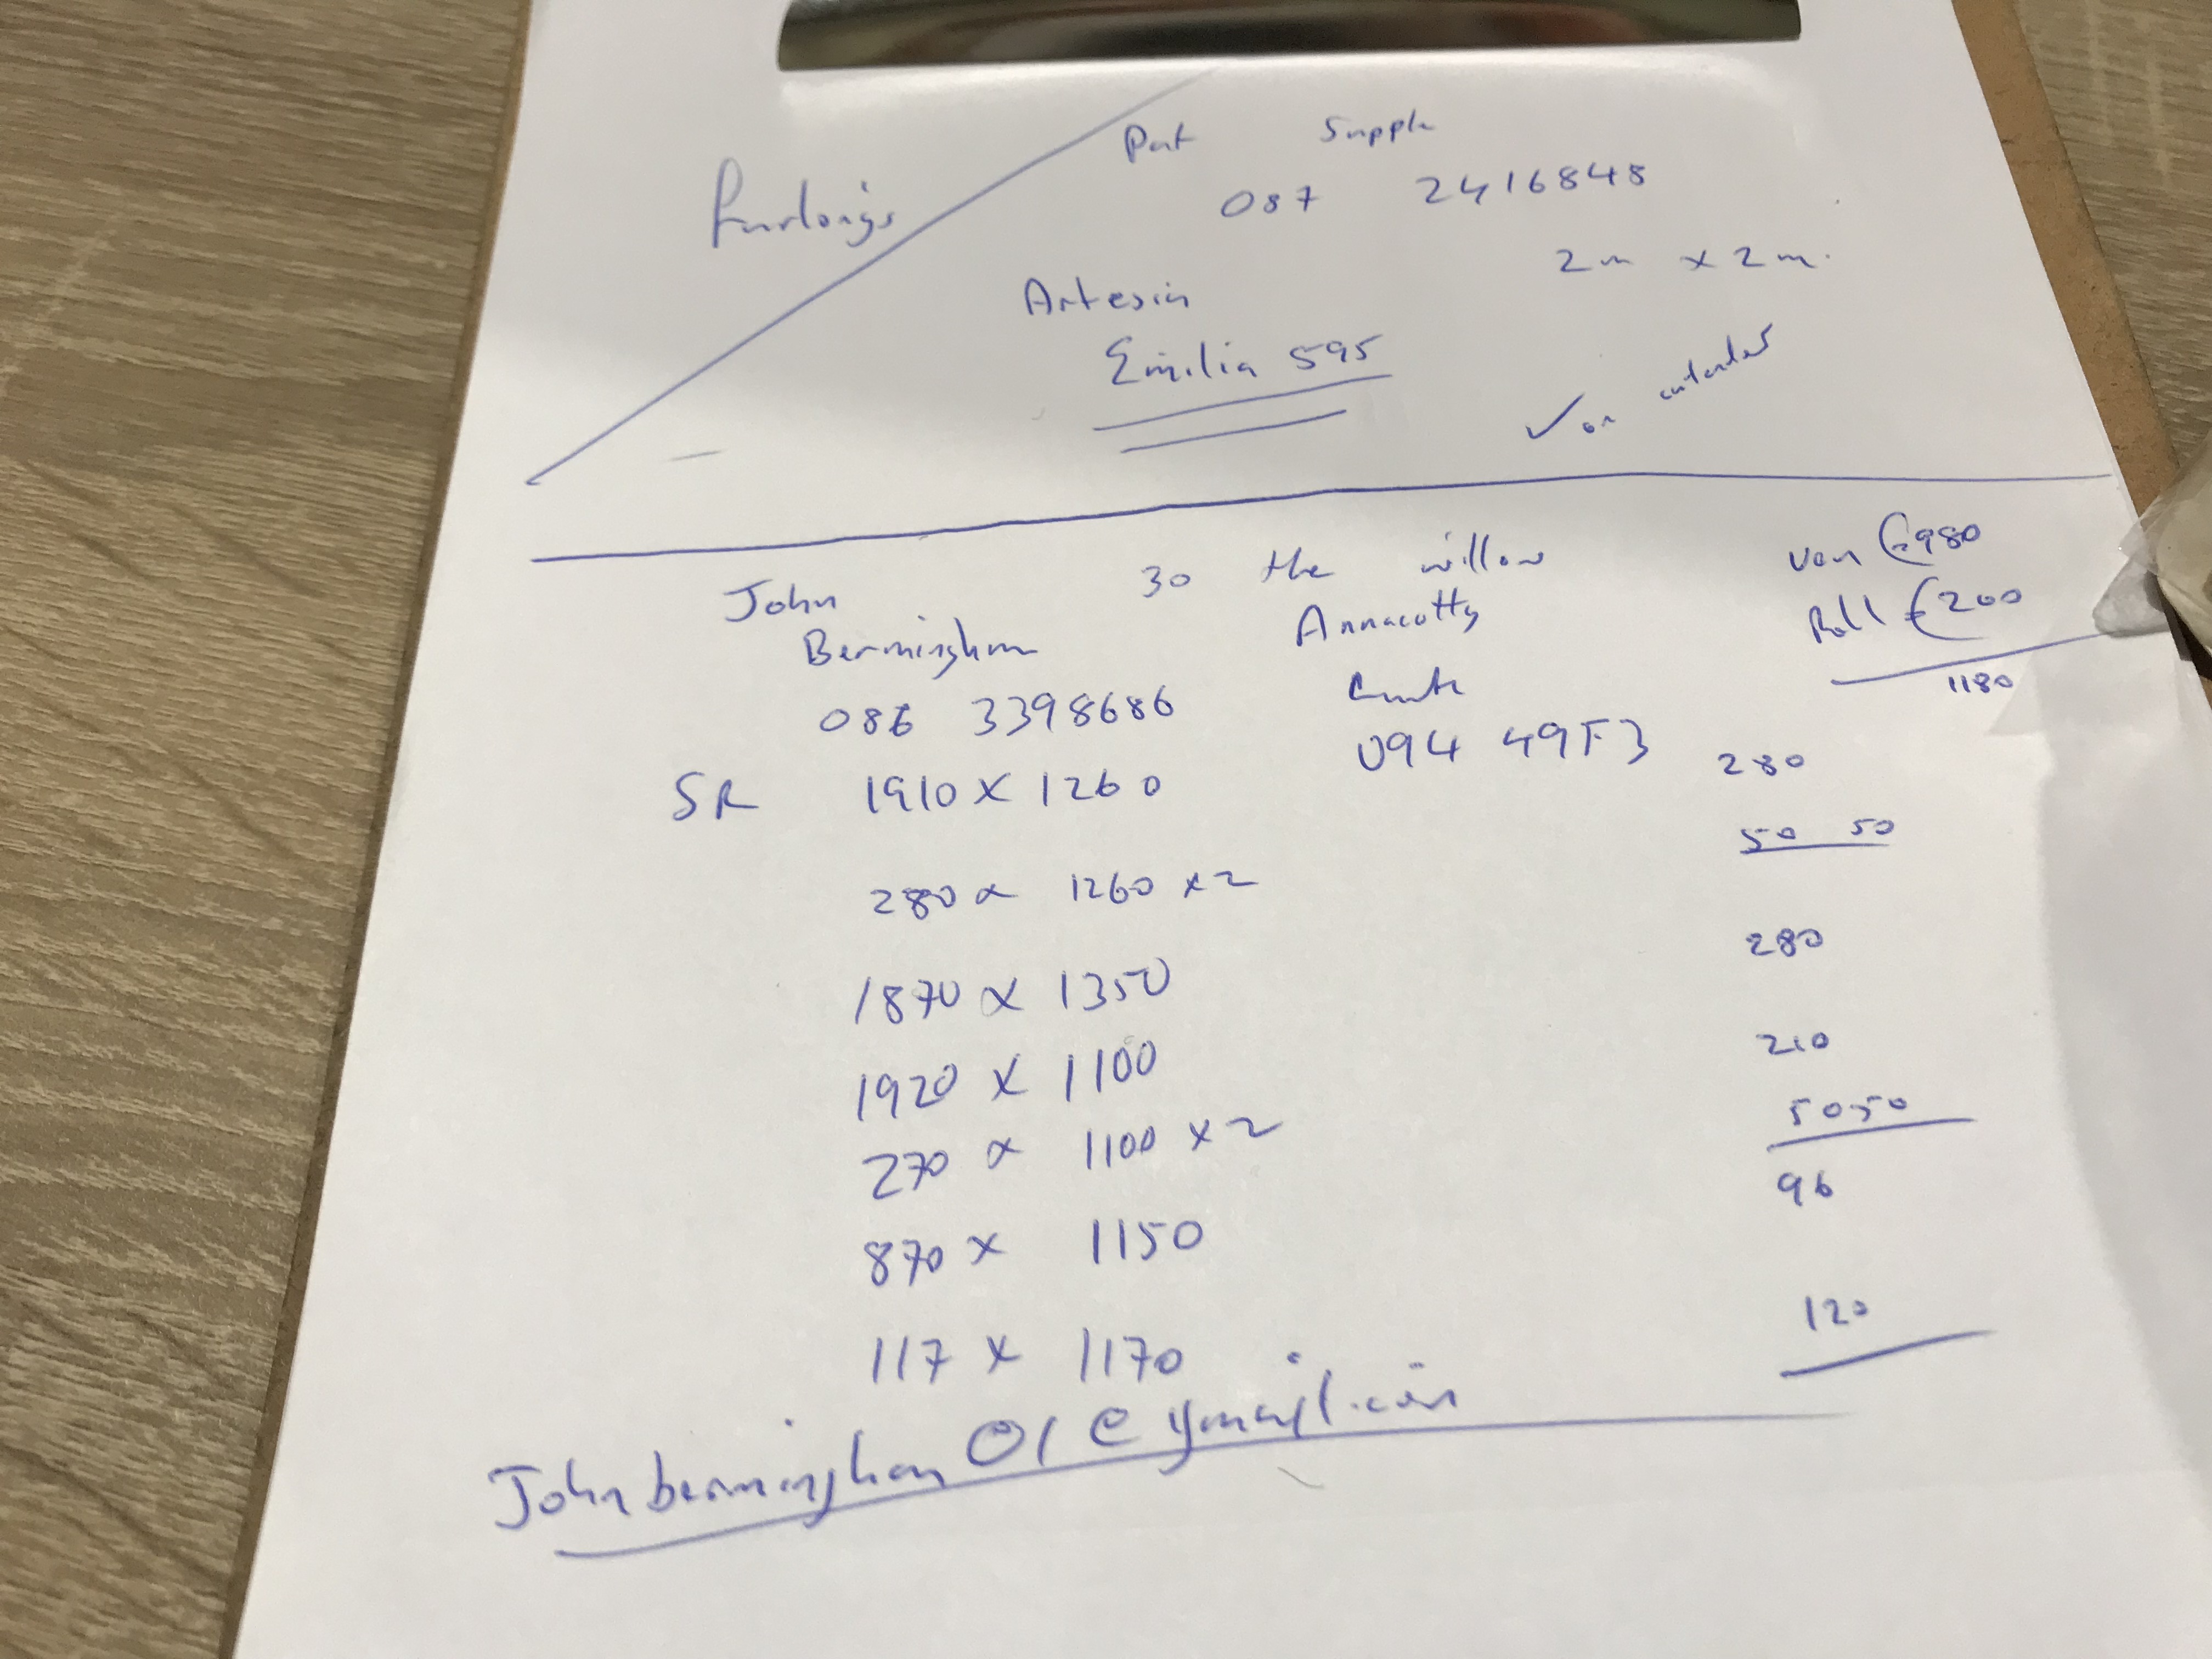 Furlongs
087 2416848
2m x 2m.
Artesin
Emilia 595
✓ on
John 30 the willow
Bermingham Annacotty
086 3398686
V94 49F3
Ven €980
Roll €200
1180
SR 1910 x 1260 280
280 x 1260 x 2 50 50
1870 x 1350 280
1920 x 1100 210
270 x 1100 x 2 50 50
870 x 1150 96
117 x 1170 120
Johnbermingham01@gmail.com